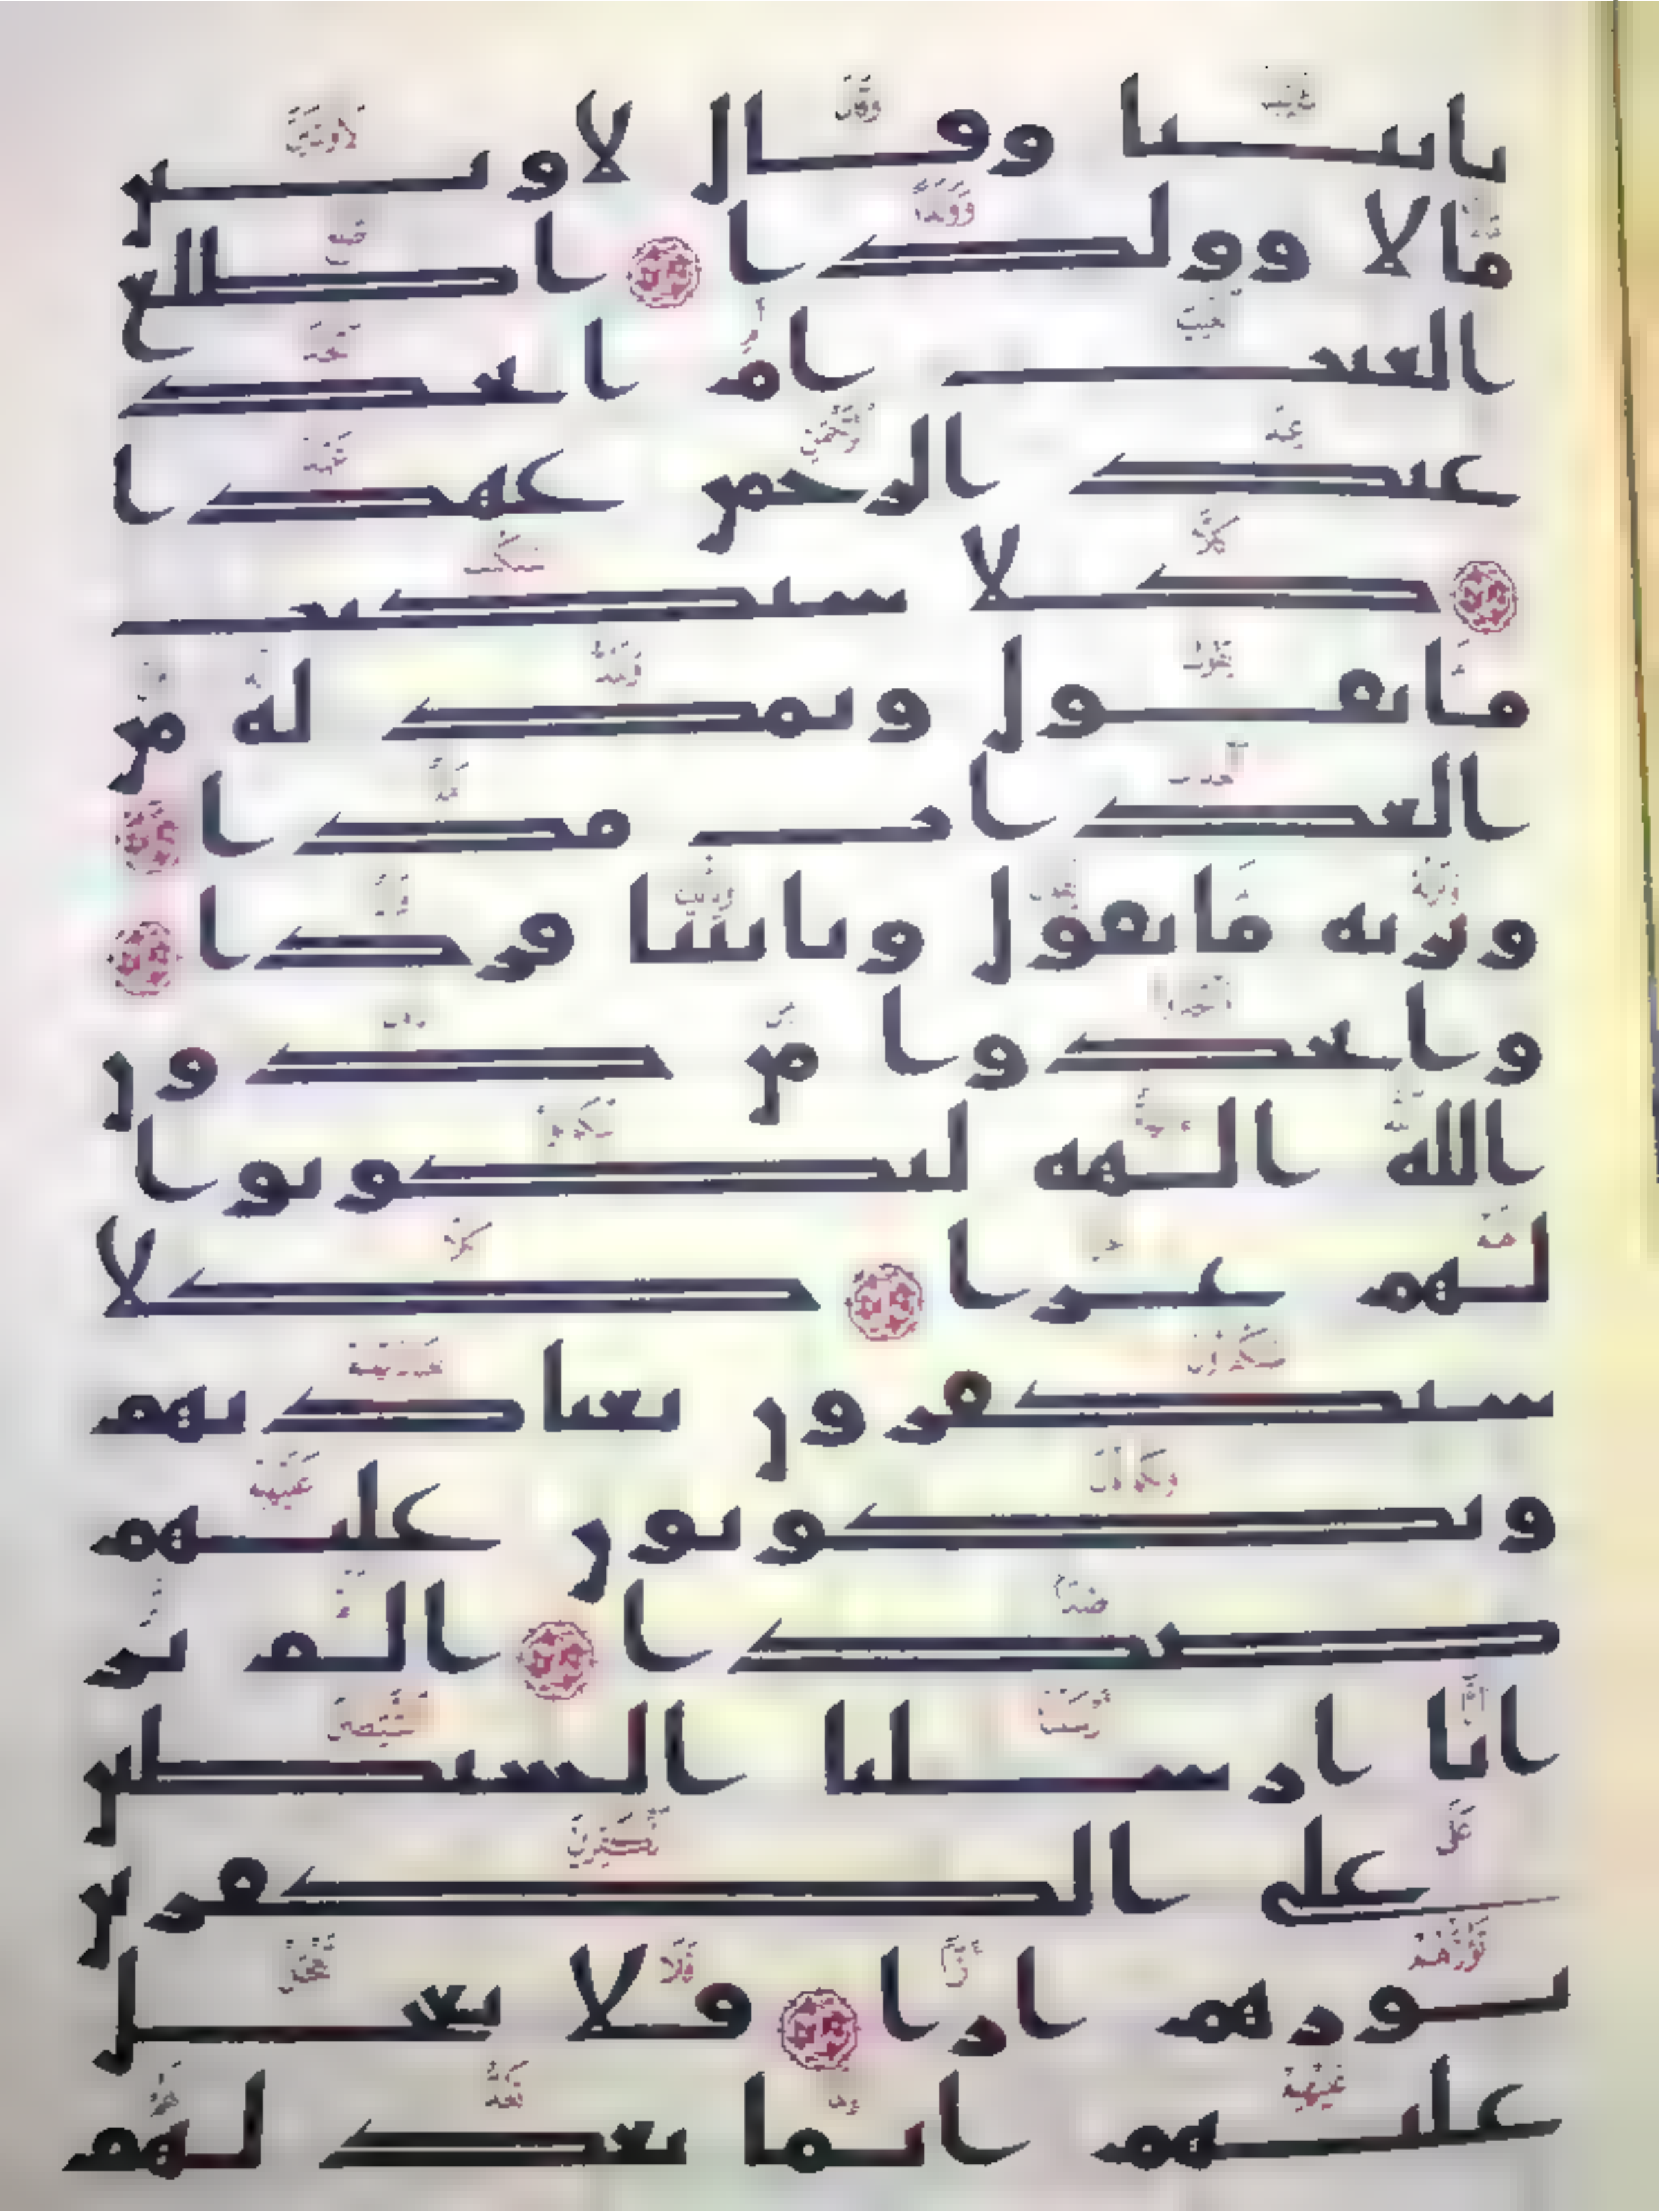 بايتنا وقال لاوتين
مالا وولدا اطلع
الغيب ام اتخذ
عند الرحمن عهدا
كلا سنكتب
ما يقول ونمد له من
العذاب مدا
ونرثه ما يقول وياتينا فردا
واتخذوا من دون
الله الهه ليكونوا
لهم عزا كلا
سيكفرون بعبادتهم
ويكونون عليهم
ضدا الم تر
انا ارسلنا الشيطين
على الكفرين
توزهم ازا فلا تعجل
عليهم انما نعد لهم